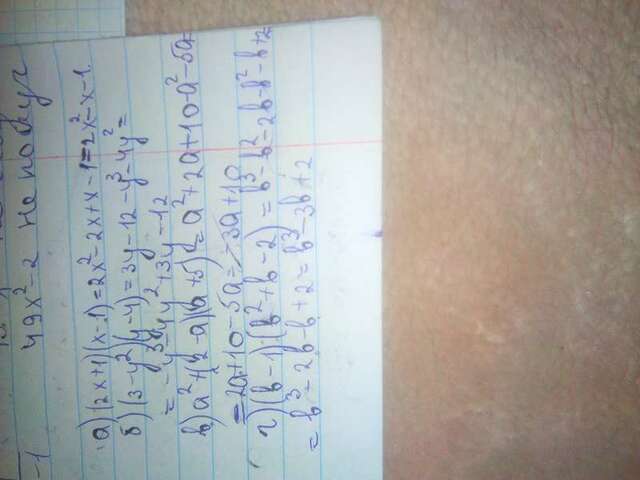 -1 49x²-2 не
а) (2x+1)(x-1)=2x²-2x+x-1=2x²-x-1
б) (3-y²)(y-4)=3y-12-y³-4y²=
= -y³-4y²+3y-12
в) a²+(2-a)(a+5)=a²+2a+10-a²-5a=
=2a+10-5a=-3a+10
г) (b-1)(b²+b-2)=b³-b²-2b-b²-b+2
=b³-2b-b+2=b³-3b+2